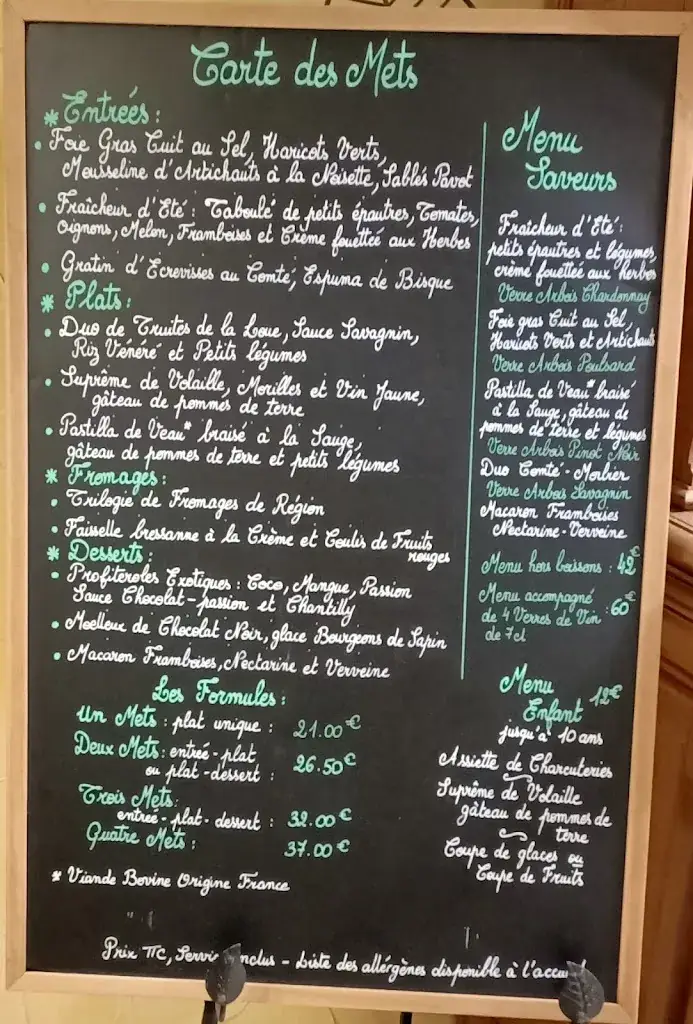 Carte des Mets
* Entrées :
• Foie Gras Cuit au Sel, Haricots Verts,
Mousseline d'Artichauts à la Noisette, Sablés Pavot
• Fraîcheur d'Eté : Taboulé de petits épautres, Tomates,
Oignons, Melon, Framboises et Crème fouettée aux Herbes
• Gratin d'Ecrevisses au Comté, Espuma de Bisque
* Plats :
• Duo de Truites de la Loue, Sauce Savagnin,
Riz Vénéré et Petits légumes
• Suprême de Volaille, Morilles et Vin Jaune,
gâteau de pommes de terre
• Pastilla de Veau* braisé à la Sauge,
gâteau de pommes de terre et petits légumes
* Fromages :
• Trilogie de Fromages de Région
• Faisselle bressanne à la Crème et Coulis de Fruits
rouges
* Desserts :
• Profiteroles Exotiques : Coco, Mangue, Passion
Sauce Chocolat-passion et Chantilly
• Moelleux de Chocolat Noir, glace Bourgeons de Sapin
• Macaron Framboises, Nectarine et Verveine
Les Formules :
Un Mets : plat unique : 21.00 €
Deux Mets : entrée-plat
ou plat-dessert : 26.50 €
Trois Mets :
entrée-plat-dessert : 32.00 €
Quatre Mets : 37.00 €
* Viande Bovine Origine France
Menu
Saveurs
Fraîcheur d'Eté :
petits épautres et légumes,
crème fouettée aux herbes
Verre Arbois Chardonnay
Foie gras Cuit au Sel,
Haricots Verts et Artichauts
Verre Arbois Poulsard
Pastilla de Veau* braisé
à la Sauge, gâteau de
pommes de terre et légumes
Verre Arbois Pinot Noir
Duo Comté - Morbier
Verre Arbois Savagnin
Macaron Framboises
Nectarine - Verveine
Menu hors boissons : 42€
Menu accompagné
de 4 Verres de Vin : 60€
de 7cl
Menu
Enfant 12€
jusqu'à 10 ans
Assiette de Charcuteries
Suprême de Volaille
gâteau de pommes de
terre
Coupe de glaces ou
Coupe de Fruits
Prix TTC, Service inclus - Liste des allergènes disponible à l'accueil